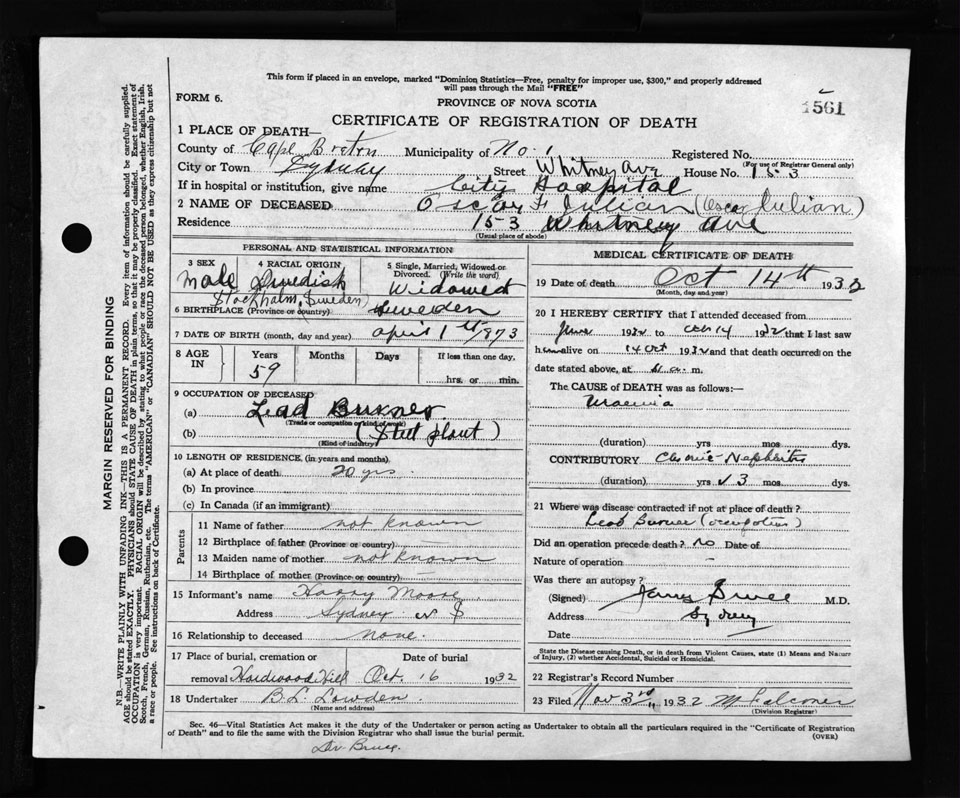 This form if placed in an envelope, marked "Dominion Statistics—Free, penalty for improper use, $300," and properly addressed
will pass through the Mail "FREE"
FORM 6.
PROVINCE OF NOVA SCOTIA
1561
CERTIFICATE OF REGISTRATION OF DEATH
1 PLACE OF DEATH—
County of Cape Breton Municipality of No. 1 Registered No.
(For use of Registrar General only)
City or Town Sydney Street Whitney Ave House No. 183
If in hospital or institution, give name City Hospital
2 NAME OF DECEASED Oscar F Julian (Oscar Julian)
Residence 183 Whitney Ave
(Usual place of abode)
PERSONAL AND STATISTICAL INFORMATION
3 SEX Male
4 RACIAL ORIGIN Swedish
5 Single, Married, Widowed or Divorced. (Write the word) Widowed
(Stockholm, Sweden)
6 BIRTHPLACE (Province or country) Sweden
7 DATE OF BIRTH (month, day and year) April 1st 1973
8 AGE IN
Years Months Days If less than one day,
59 hrs. or min.
9 OCCUPATION OF DECEASED
(a) Lead Burner
(Trade or occupation or kind of work)
(b) (Steel plant)
(Kind of industry)
10 LENGTH OF RESIDENCE, (in years and months).
(a) At place of death 20 yrs.
(b) In province
(c) In Canada (if an immigrant)
Parents
11 Name of father not known
12 Birthplace of father (Province or country)
13 Maiden name of mother not known
14 Birthplace of mother (Province or country) —
15 Informant's name Harry Moore
Address Sydney N S
16 Relationship to deceased none.
17 Place of burial, cremation or Date of burial
removal Hardwood Hill Oct. 16 1932
18 Undertaker B. L. Lowden
(Name and address)
MEDICAL CERTIFICATE OF DEATH
19 Date of death Oct 14th 1932
(Month, day and year)
20 I HEREBY CERTIFY that I attended deceased from
June 1932 to Oct 14 1932 that I last saw
him alive on 14 Oct 1932 and that death occurred on the
date stated above, at a. m.
The CAUSE of DEATH was as follows:—
Uraemia
(duration) yrs mos dys.
CONTRIBUTORY Chronic Nephritis
(duration) yrs 3 mos. dys.
21 Where was disease contracted if not at place of death?
Lead Burner (occupation)
Did an operation precede death? no Date of
Nature of operation —
Was there an autopsy?
(Signed) Bruce M.D.
Address Sydney
Date
State the Disease causing Death, or in death from Violent Causes, state (1) Means and Nature
of Injury, (2) whether Accidental, Suicidal or Homicidal.
22 Registrar's Record Number
23 Filed Nov 3rd 1932 M Falconer
(Division Registrar)
Sec. 46—Vital Statistics Act makes it the duty of the Undertaker or person acting as Undertaker to obtain all the particulars required in the "Certificate of Registration
of Death" and to file the same with the Division Registrar who shall issue the burial permit.
(OVER)
Dr. Bruce.
MARGIN RESERVED FOR BINDING
N.B.—WRITE PLAINLY WITH UNFADING INK—THIS IS A PERMANENT RECORD. Every item of information should be carefully supplied.
AGE should be stated EXACTLY. PHYSICIANS should STATE CAUSE OF DEATH in plain terms, so that it may be properly classified. Exact statement of
OCCUPATION is very important. RACIAL ORIGIN will be described by stating to what people or race the deceased person belonged, whether English, Irish,
Scotch, French, German, Russian, Ruthenian, etc. The terms "AMERICAN" or "CANADIAN" SHOULD NOT BE USED as they express citizenship but not
a race or people. See instructions on back of Certificate.